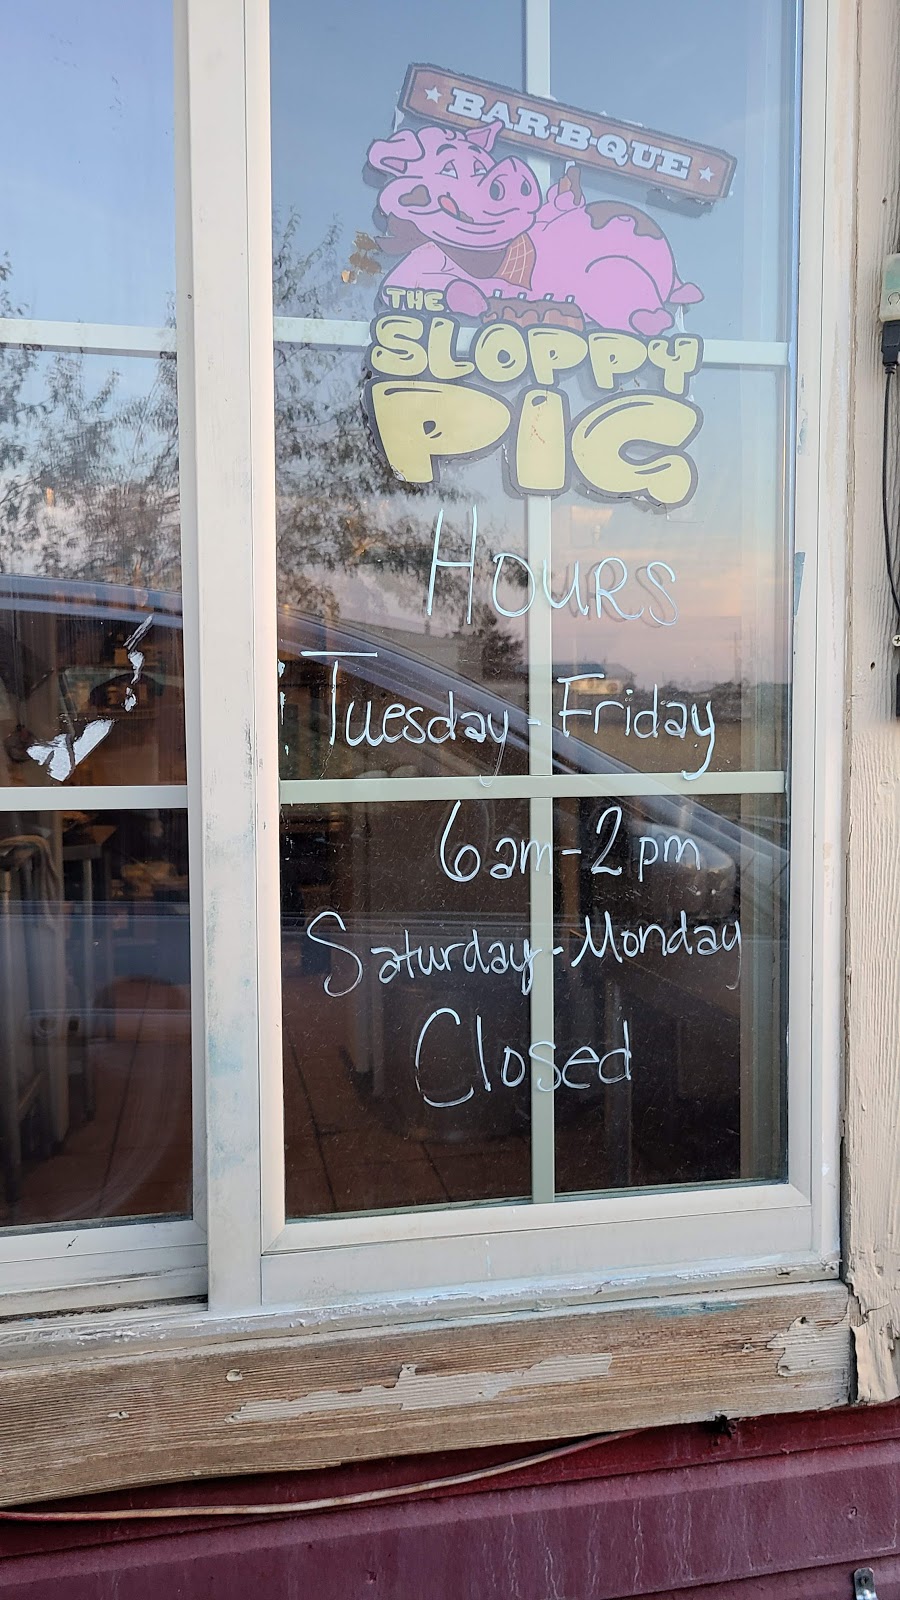 BAR-B-QUE
THE
SLOPPY
PIG
HOURS
Tuesday - Friday
6am - 2pm
Saturday - Monday
Closed